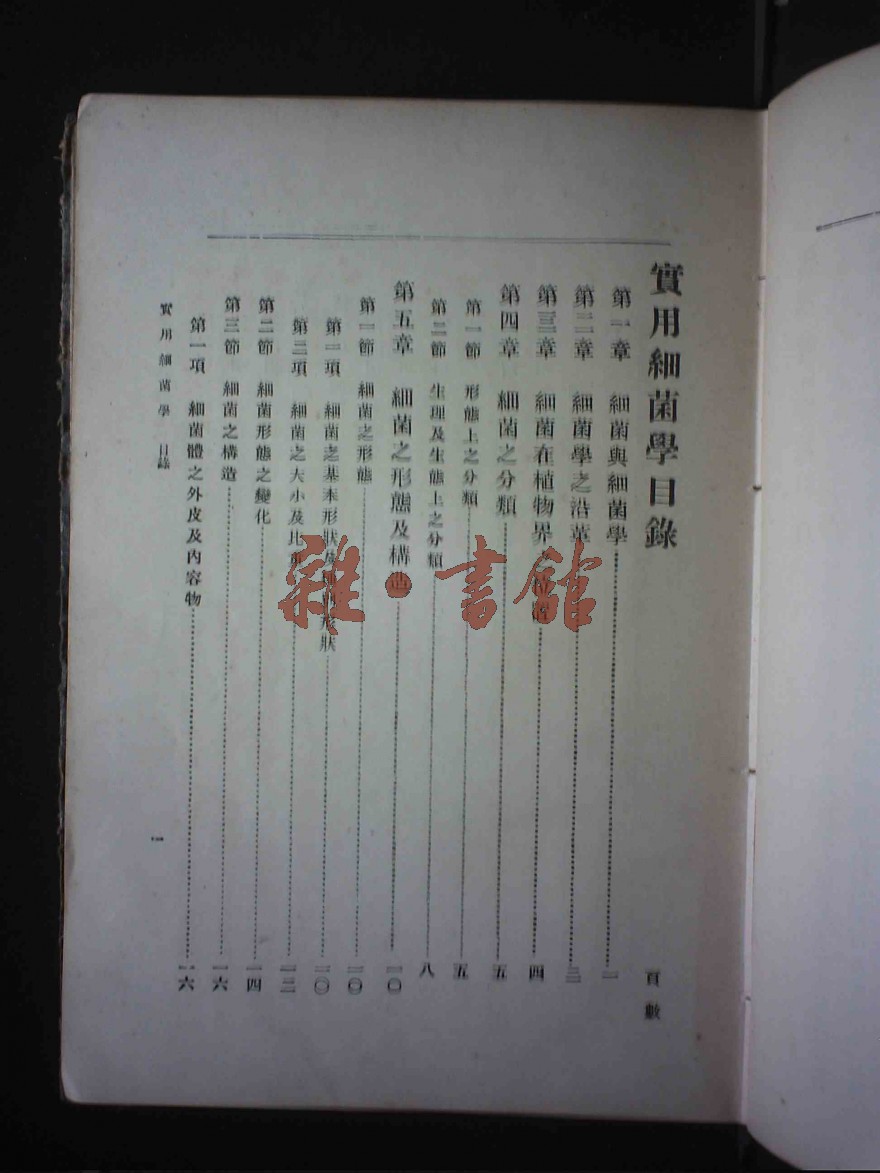 實用細菌學目錄
頁數
第一章 細菌與細菌學 一
第二章 細菌學之沿革 三
第三章 細菌在植物界之位置 四
第四章 細菌之分類 五
第一節 形態上之分類 五
第二節 生理及生態上之分類 八
第五章 細菌之形態及構造 一〇
第一節 細菌之形態 一〇
第一項 細菌之基本形狀及 形狀 一〇
第二項 細菌之大小及比重 一三
第二節 細菌形態之變化 一四
第三節 細菌之構造 一六
第一項 細菌體之外皮及內容物 一六
實用細菌學 目錄
一
雜·書館